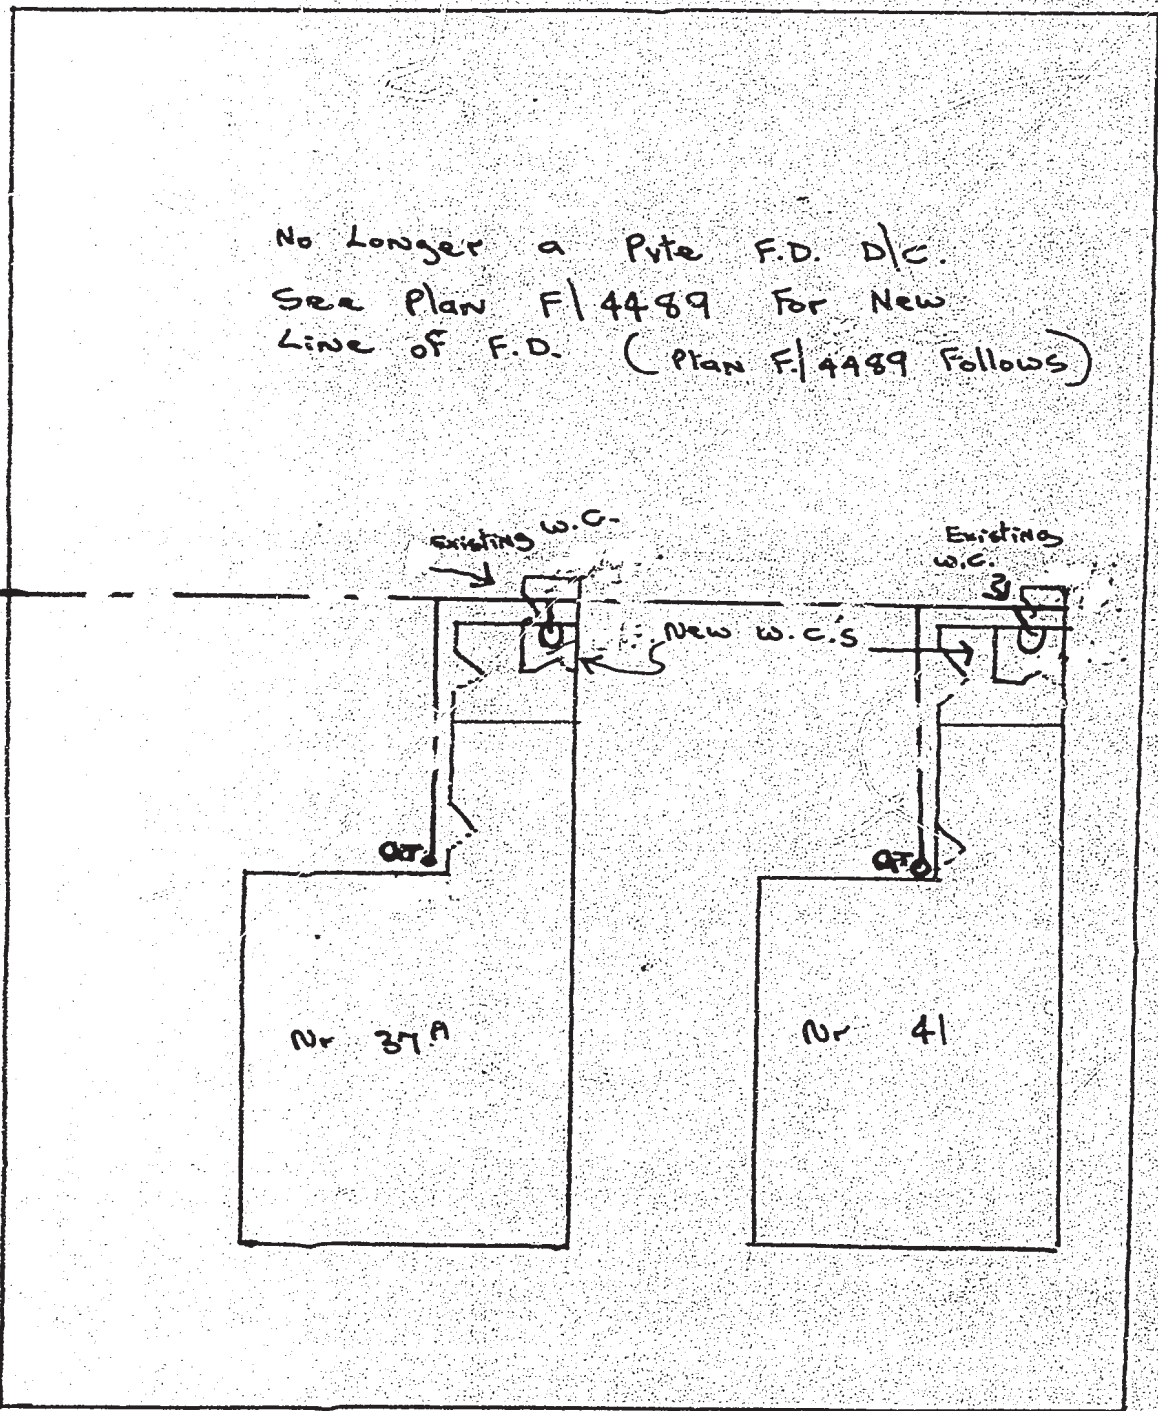 No Longer a Pvte F.D. D/C.
See Plan F/4489 For New
Line of F.D. (Plan F/4489 Follows)
Existing W.C.
Existing
W.C.
New W.C.'s
GT
GT
Nr 37A
Nr 41